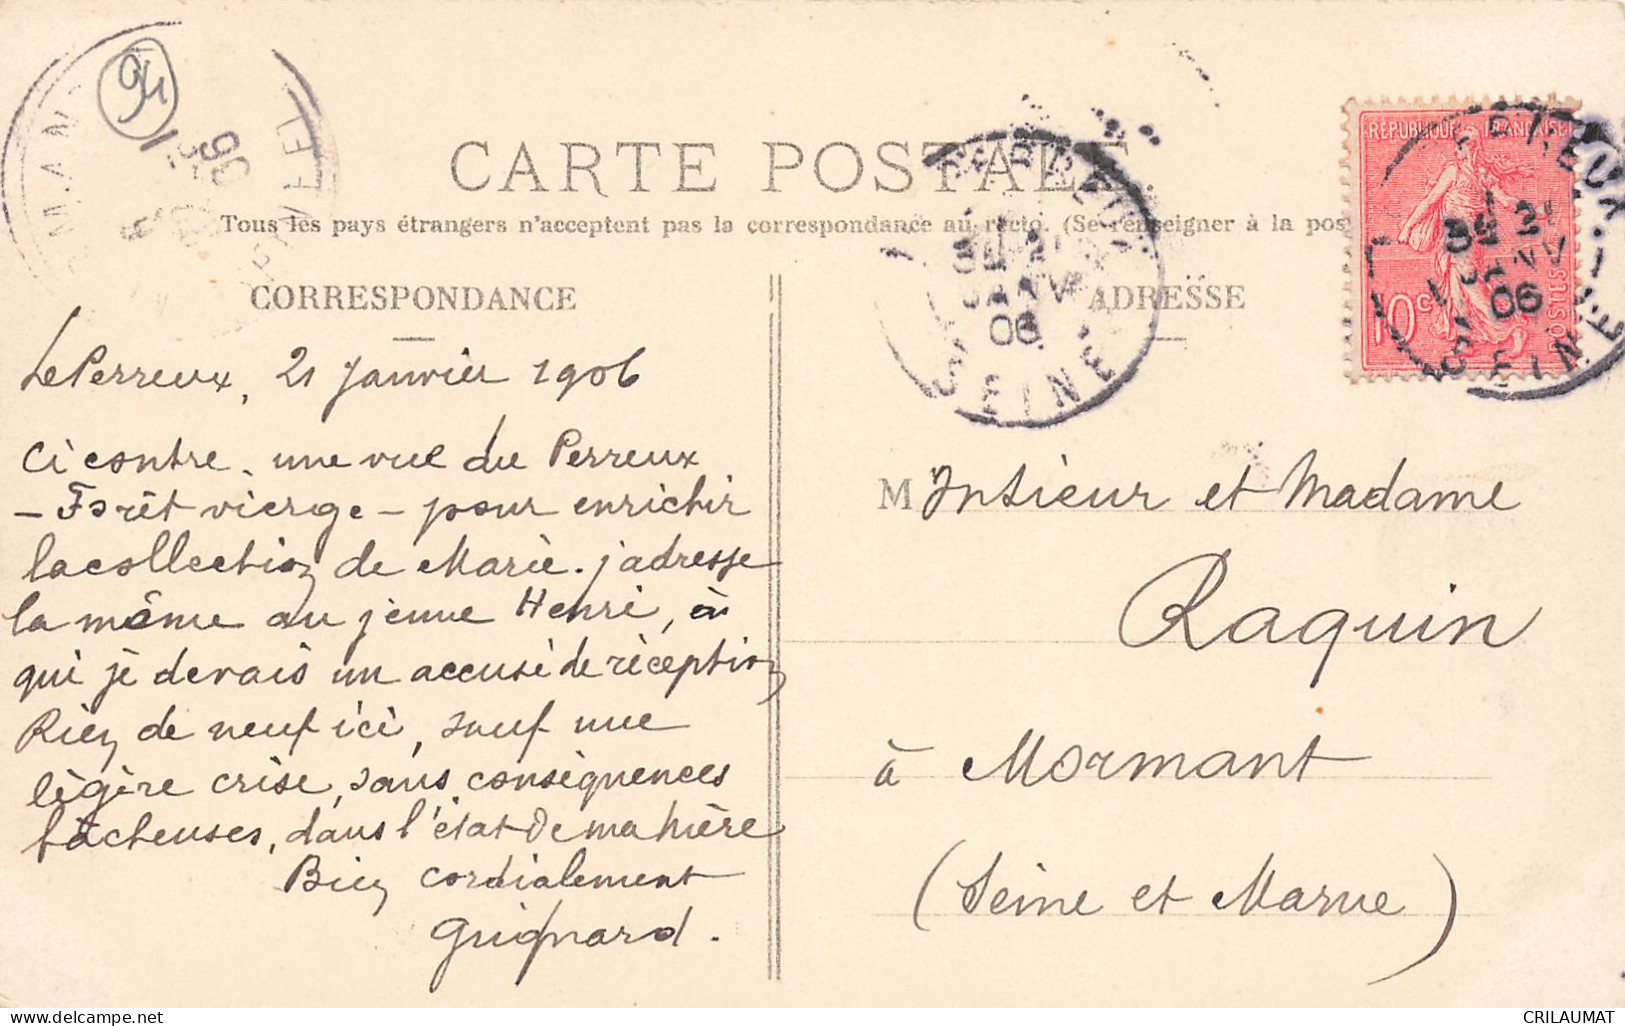 94
CARTE POSTALE
Tous les pays étrangers n'acceptent pas la correspondance au recto. (Se renseigner à la pos
RÉPUBLIQUE FRANÇAISE
10c
POSTES
LE PERREUX
3E 21
JANV
06
SEINE
LE PERREUX
3E 21
JANV
06
SEINE
CORRESPONDANCE
Le Perreux, 21 Janvier 1906
Ci contre. une vue du Perreux
- Forêt vierge - pour enrichir
la collection de Marie. j'adresse
la même au jeune Henri, à
qui je devais un accusé de réception
Rien de neuf ici, sauf une
légère crise, sans conséquences
fâcheuses, dans l'état de ma mère
Bien cordialement
Guignard.
ADRESSE
Monsieur et Madame
Raquin
à Mormant
(Seine et Marne)
CRILAUMAT